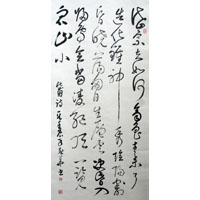 岱宗夫如何齊魯青未了
造化鍾神秀陰陽割
昏曉蕩胸生層雲決眥入
歸鳥會當凌絕頂一覽
衆山小
杜甫詩